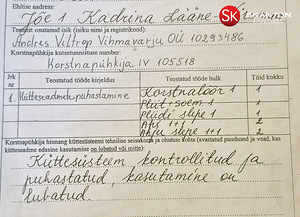 Ehitise aadress:
Jõe 1 Kadrina Lääne-
SK
Teostatud osutanud isik (isiku nimi ja registrikood):
Andres Viltrop Vihmavarju OÜ 10293486
Korstnapühkija kutsetunnistuse number:
Korstnapühkija IV 105518
Jrk nr
Teostatud tööde kirjeldus
Teostatud tööde hulk
Tõid kokku
1. Kütteseadmete puhastamine
Korstnalõõr 1
1
Pliit+soem 1
1
Pliidi siipe 1
1
Ahju 1+1
2
Ahju siipe 1+1
2
Korstnapühkija hinnang küttesüsteemi tehnilise seisukorra ja ohutuse kohta (avastatud puudused ja vead, kas
kütteseadme edasine kasutamine on lubatud või mitte)
Küttesüsteem kontrollitud ja
puhastatud, kasutamine on
lubatud.